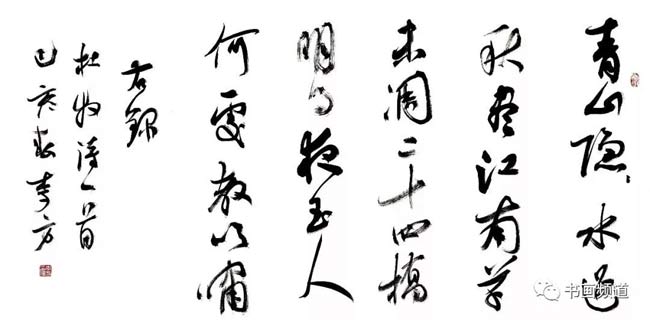 青山隐隐水迢
秋尽江南草
未凋二十四橋
明月夜玉人
何處教吹
右錄
杜牧诗一首
己亥春李方
书画频道